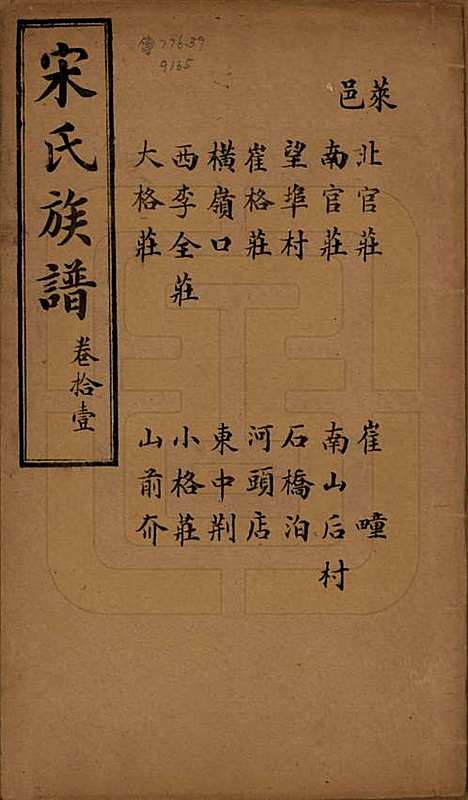 宋氏族譜
卷拾壹
傳776.39
9165
萊邑
北官莊 崔疃
南官莊 南山后村
望埠村 石橋泊
崔格莊 河頭店
橫嶺口 東中荆
西李全莊 小格莊
大格莊 山前夼